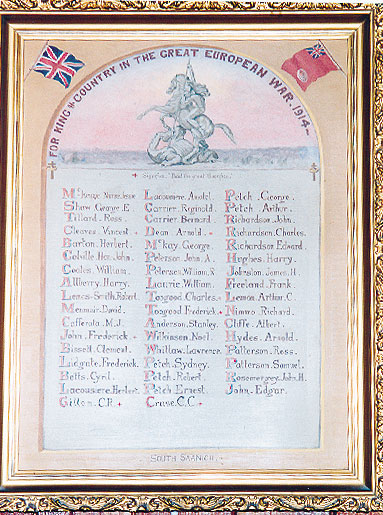 FOR KING & COUNTRY IN THE GREAT EUROPEAN WAR. 1914-
+ Signifies
Shaw. George. E
Tillard. Ross.
Cleaves. Vincent +
Barton. Herbert.
Colville. Hon. John.
Coales. William.
Allberry. Harry.
Lomas-Smith. Robert.
David.
Cafferata. M.J.
John. Frederick +
Bissett. Clement.
Lidgate. Frederick.
Betts. Cyril.
Lacoursiere. Herbert.
C.P. +
Lacoursiere.
Carrier. Reginald.
Carrier. Bernard.
Dean. Arnold +
McKay. George.
Peterson. John. A.
Petersen. William. R
Laurie. William.
Toogood. Charles +
Toogood. Frederick +
Anderson. Stanley.
Wilkinson. Noel.
Whitlaw. Lawrence.
Petch. Sydney.
Petch. Robert.
Petch. Ernest.
Cruse. C.C. +
Petch. George.
Petch. Arthur.
Richardson. John.
Richardson. Charles.
Richardson. Edward.
Hughes. Harry.
Johnston. James. H.
Freeland. Frank.
Lemon. Arthur. C.
Nimmo. Richard.
Cliffe. Albert.
Hydes. Arnold.
Patterson. Ross.
Patterson. Samuel.
John. H.
John. Edgar.
SOUTH SAANICH.